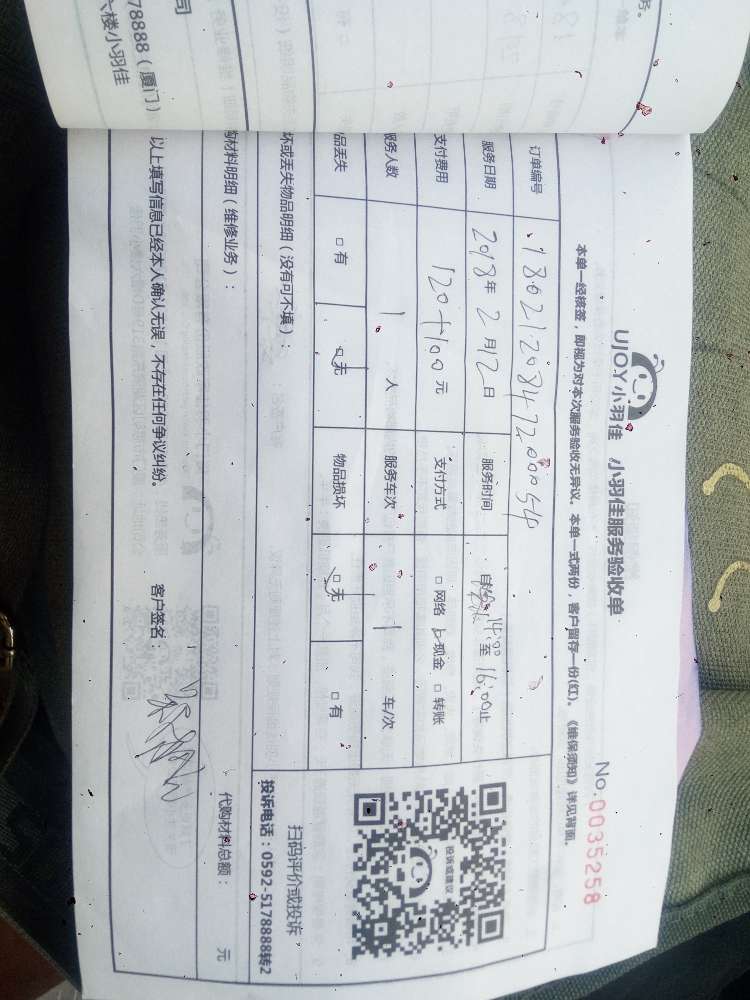 UJOY小羽佳 小羽佳服务验收单
No.0035258
本单一经核签，即视为对本次服务验收无异议。本单一式两份，客户留存一份(红)。《维保须知》详见背面。
订单编号 180212084722000054
服务日期 2018年2月12日 服务时间 14:00至16:00止
支付费用 120+100元 支付方式 □网络 □现金 □转账
服务人数 1人 服务车次 1 车/次
品丢失 □有 □无 物品损坏 □无 □有
坏或丢失物品明细（没有可不填）：
购材料明细（维修业务）：
代购材料总额： 元
投诉或建议
扫码评价或投诉
投诉电话：0592-5178888转2
以上填写信息已经本人确认无误，不存在任何争议纠纷。 客户签名：
78888（厦门）
六楼小羽佳
司
务。